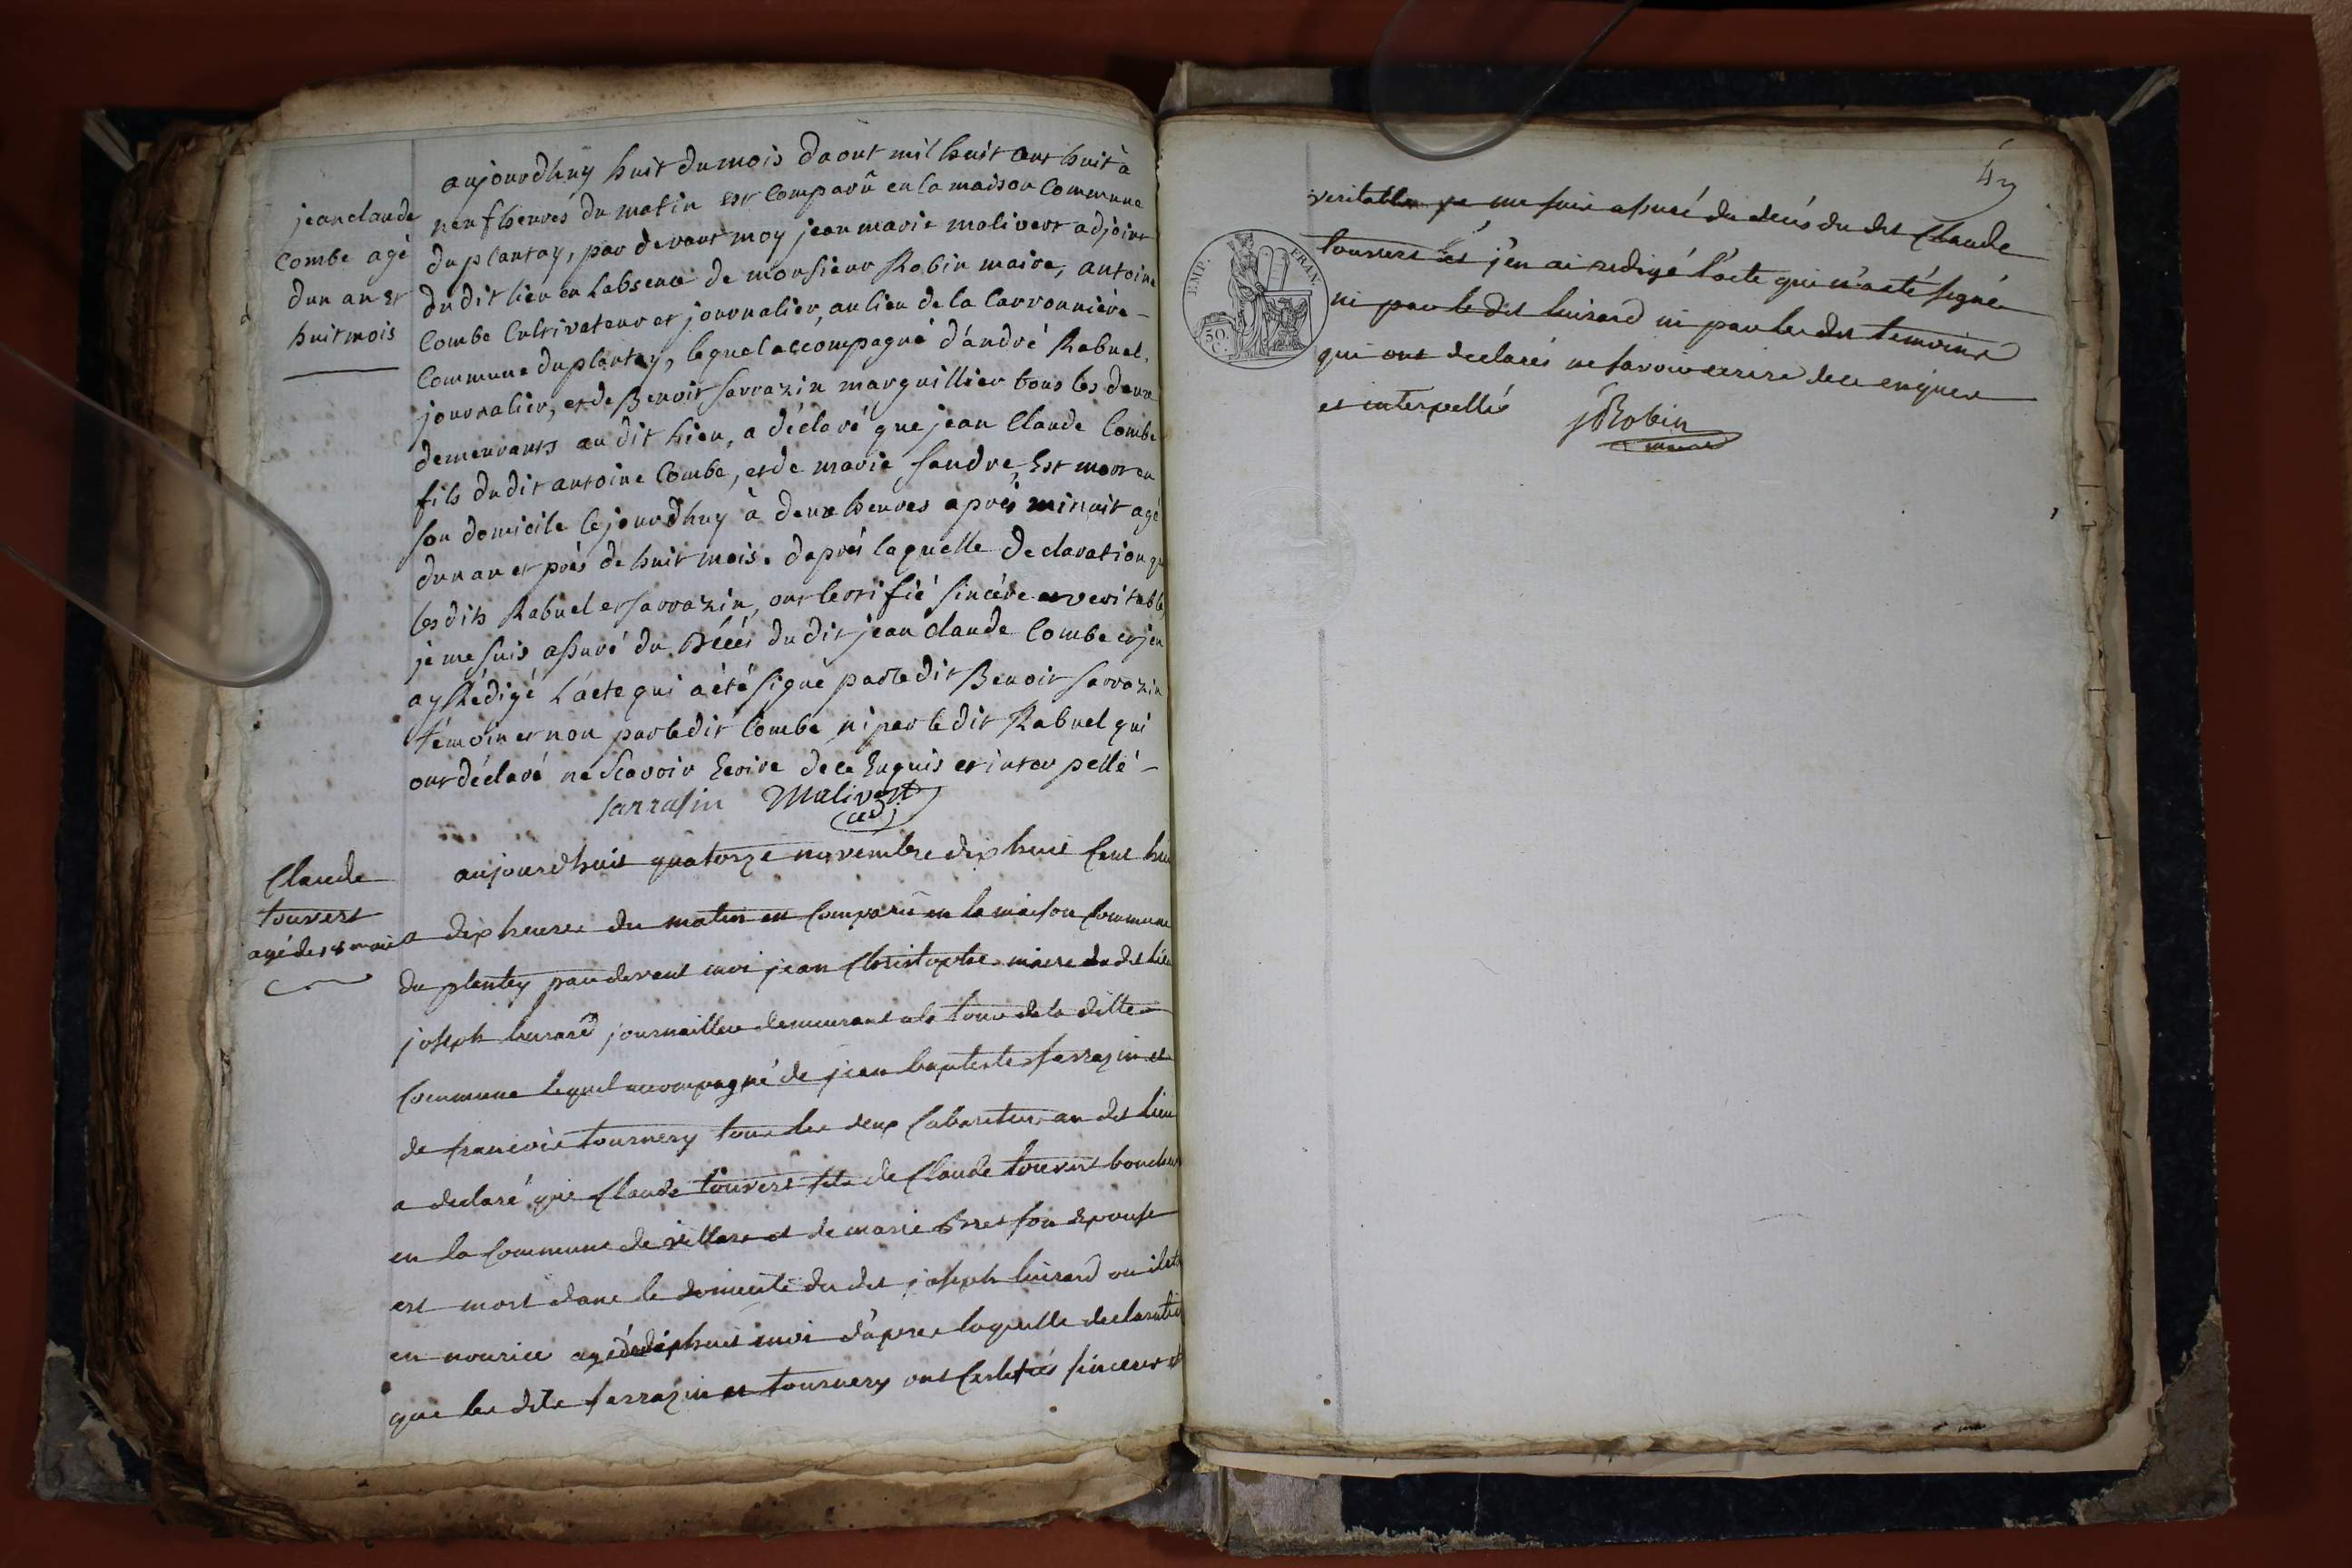 jean claude
Combe agé
dun an et
huit mois
aujourdhuy huit du mois daout mil huit cent huit à
neuf heures du matin est Comparû en la maison Commune
du plantay, par devant moy jean marie malivert adjoint
du dit lieu en Labsence de monsieur Robin maire, antoine
Combe Cultivateur et journalier, au lieu de la Carronnière
Commune du plantay, lequel accompagné d'andré Rabuel,
journalier, et de Benoit Sarrazin marguillier tous les deux
demeurants au dit Lieu, a déclaré que jean Claude Combe
fils du dit antoine Combe, et de marie fandre, Est mort en
son domicile cejourdhuy à deux heures après minuit agé
dun an et près de huit mois. daprès laquelle declaration que
lesdits Rabuel et Sarrazin, ont Certifié Sincère et veritable,
je me suis assuré du Décés du dit jean Claude Combe et jen
ay Rédigé L'acte qui a été signé par le dit Benoit Sarrazin
témoin et non par le dit Combe ni par le dit Rabuel qui
ont déclaré ne Scavoir Ecrire de ce Enquis et interpellé
Sarrasin Malivert
adj
Claude
touvert
agé de 18 mois
aujourdhuit quatorze novembre dix huit Cent huit
a dix heures du matin est Comparu en la maison Commune
du plantey par devant moi jean Christophe maire du dit lieu
joseph luisard journaillier demeurant a la tour de la ditte
Commune lequel accompagné de jean baptiste sarrazin et
de francois tournery tous les deux Cabaretier au dit lieu
a declaré que Claude touvert fils de Claude touvert boucher
en la Commune de villars et de marie Bret son Epouse
est mort dans le domicile du dit joseph luisard ou il etoit
en nourice agé de dix huit moi d'apres laquelle declaration
que les dits sarrazin et tournery ont Certifiés sincere et
43
EMP. FRAN.
50 C.
veritable je me suis assuré du decés du dit Claude
touvert et j'en ai redigé l'acte qui n'a eté signé
ni par le dit luisard ni par les dits temoins
qui ont declarés ne savoir ecrire de ce enquis
et interpellés
jRobin
maire